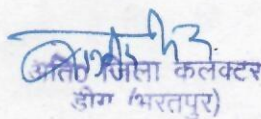 अति० जिला कलक्टर
डीग (भरतपुर)